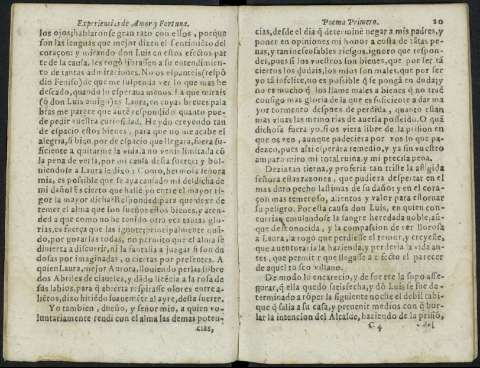 Experiencias de Amor y Fortuna.
los ojos hablaron se gran rato con ellos, porque
son las lenguas que mejor dizen el sentimiẽto del
coraçon; y mirando don Luis en estos efectos par
te de la causa, les rogò hiziessen a su entendimien
to de tantas admiraciones. No os espanteis (respõ
dio Fenisa) de que me suspenda ver lo que mas he
desseado, quando lo esperaua menos. La que mirais
(ò don Luis amigo) es Laura, en cuyas breues pala
bras me parece que aurè respondido quanto pue-
de pedir vuestra curiosidad. He ydo creyendo tan
de espacio estos bienes, para que no me acabe el
alegria, si bien por de espacio que llegara, fuera su-
ficiente a quitarme la vida a no venir limitada cõ
la pena de verla, por mi causa
niendose a Laura le dixo: Como, hermosa señora
mia, es possible que se aya cansado mi desdicha de
mi daño? Es cierto que hallè yo entre el mayor ri-
gor la mayor dicha? Responded; para que dexe de
temer el alma que son sueños estos bienes, y aten-
ded a que como no he tenido otra vez tantas glo-
rias, es fuerça que las ignore; principalmente quã-
do, por gozarlas todas, no permito que el alma se
diuierta a discurrir, ni la fantasia a juzgar si son du
dosas por imaginadas, o ciertas por presentes. A
quien Laura, mejor Aurora, lloviendo perlas sobre
dos Abriles de claueles, y dãdo licẽcia a la rosa de
sus labios, para q̃ abierta respirasse olores entre a-
liẽtos, dixo hiriẽdo suauemẽte al ayre, desta suerte.
Yo tambien, dueño, y señor mio, a quien vo-
luntariamente rendi con el alma las demas poten-
cias,
Poema Primero. 20
cias, desde el dia q̃ determinè negar a mis padres, y
poner en opiniones mi honor a costa de tãtas pe-
nas, y tan inescusables riesgos, ignoro que respon-
der, pues si los vuestros son bienes, que por ser tã
ciertos los dudais, los mios son males, que por ser
yo tã infelice, no es possible q̃ se pongã en duda; y
no es mucho q̃ los llame males a bienes q̃ no traẽ
consigo mas gloria de la que es suficiente a dar ma
yor tormento despues de perdida, quanto estàn
mas viuas las memorias de auerla posseido. O què
dichosa fuera yo, si os viera libre de la prision en
que os veo, aunque padeciera por vos lo que pa-
dezco, pues alli esperàra remedio, y ya sin vuestro
amparo miro mi total ruina, y mi precisa pena.
Dezia tan tierna, y proferia tan triste la afligida
señora estas razones, que pudiera despertar en el
mas duro pecho lastimas de su daño; y en el cora-
çon mas temeroso, alientos y valor para estoruar
su peligro. Por esta causa don Luis, en quien con-
currian emulandose la sangre heredada noble, aũ-
que desconocida, y la compassion de ver llorosa
a Laura, la rogò que perdiesse el temor, y creyesse,
que auenturaria la hazienda, y perderia la vida an-
tes, que permitir que llegasse a efecto el parecer
de aquel tosco villano.
De modo lo encarecio, y de suerte lo supo asse-
gurar, q̃ ella quedò satisfecha, y dõ Luis se fue de-
terminado a rõper la siguiente noche el debil tabi-
que q̃ salia a su casa, y preuenir medios con q̃ bur-
lar la intencion del Alcalde, haziendo de la prisiõ,
C 4 del